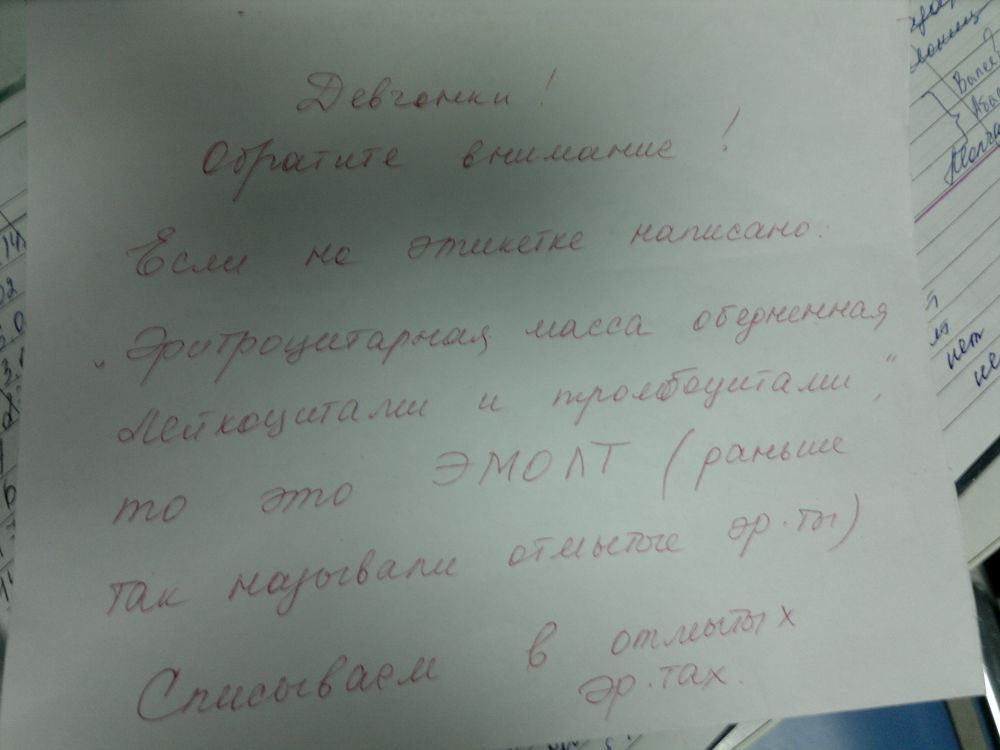 Девчонки!
Обратите внимание!
Если на этикетке написано:
"Эритроцитарная масса обедненная
лейкоцитами и тромбоцитами,"
то это ЭМОЛТ (раньше
так называли отмытые эр.ты)
Списываем в отмытых
эр.тах.
нет
не